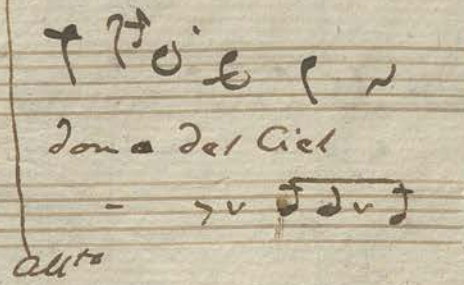 dono del Ciel
All.to